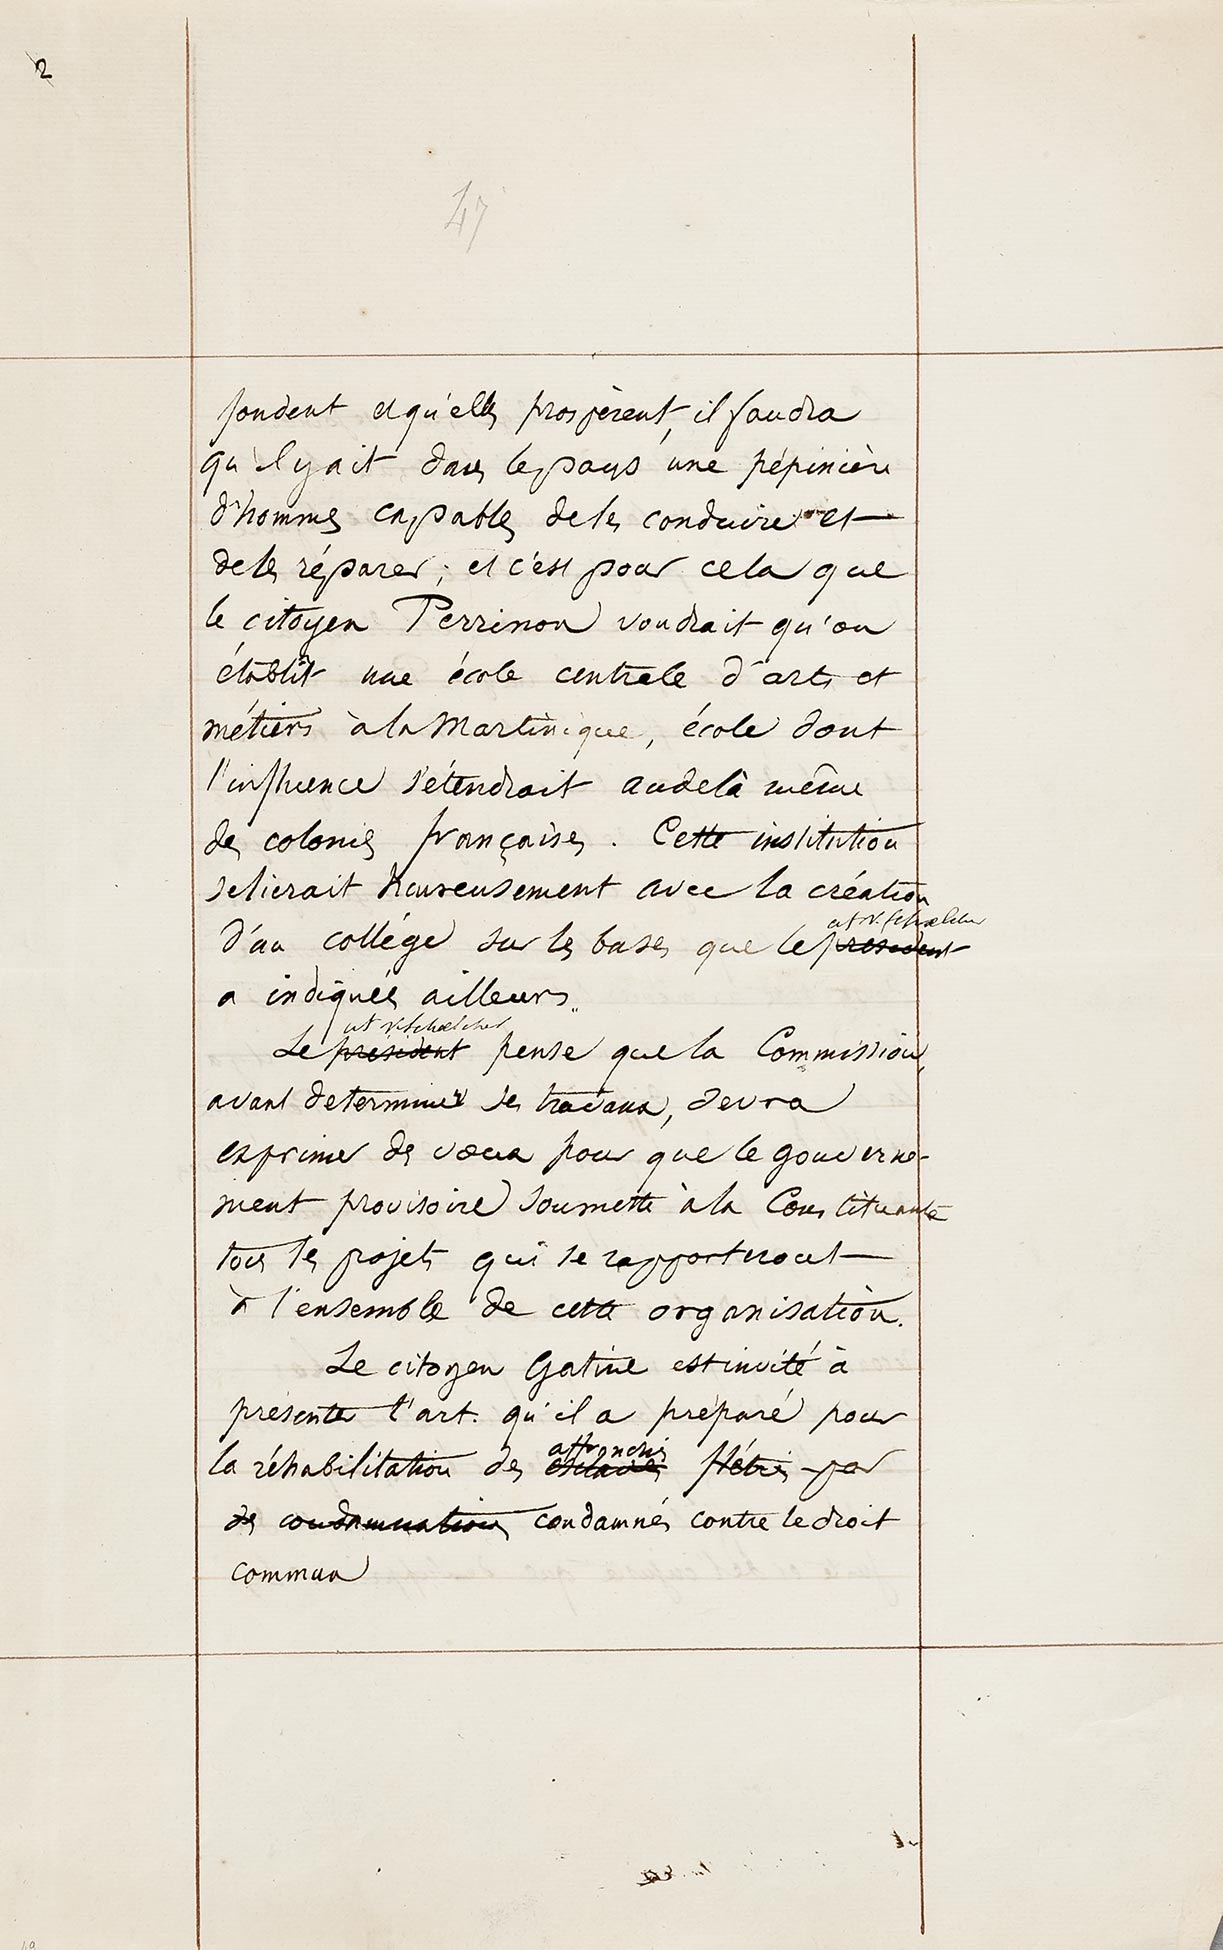 2
47
fondent et qu'elles prospèrent, il faudra
qu'il y ait dans le pays une pépinière
d'hommes capables de les conduire et
de les réparer ; et c'est pour cela que
le citoyen Perrinon voudrait qu'on
établît une école centrale d'arts et
métiers à la Martinique, école dont
l'influence s'étendrait audelà même
des colonies françaises. Cette institution
se lierait heureusement avec la création
cit V. Schœlcher
d'un collége sur les bases que le président
a indiquées ailleurs.
cit V. Schœlcher
Le président pense que la Commission,
avant de terminer ses travaux, devra
exprimer des vœux pour que le gouverne-
ment provisoire soumette à la Constituante
tous les projets qui se rapporteront
à l'ensemble de cette organisation.
Le citoyen Gatine est invité à
présenter l'art. qu'il a préparé pour
affranchis
la réhabilitation des esclaves flétris par
des condamnations condamnés contre le droit
commun